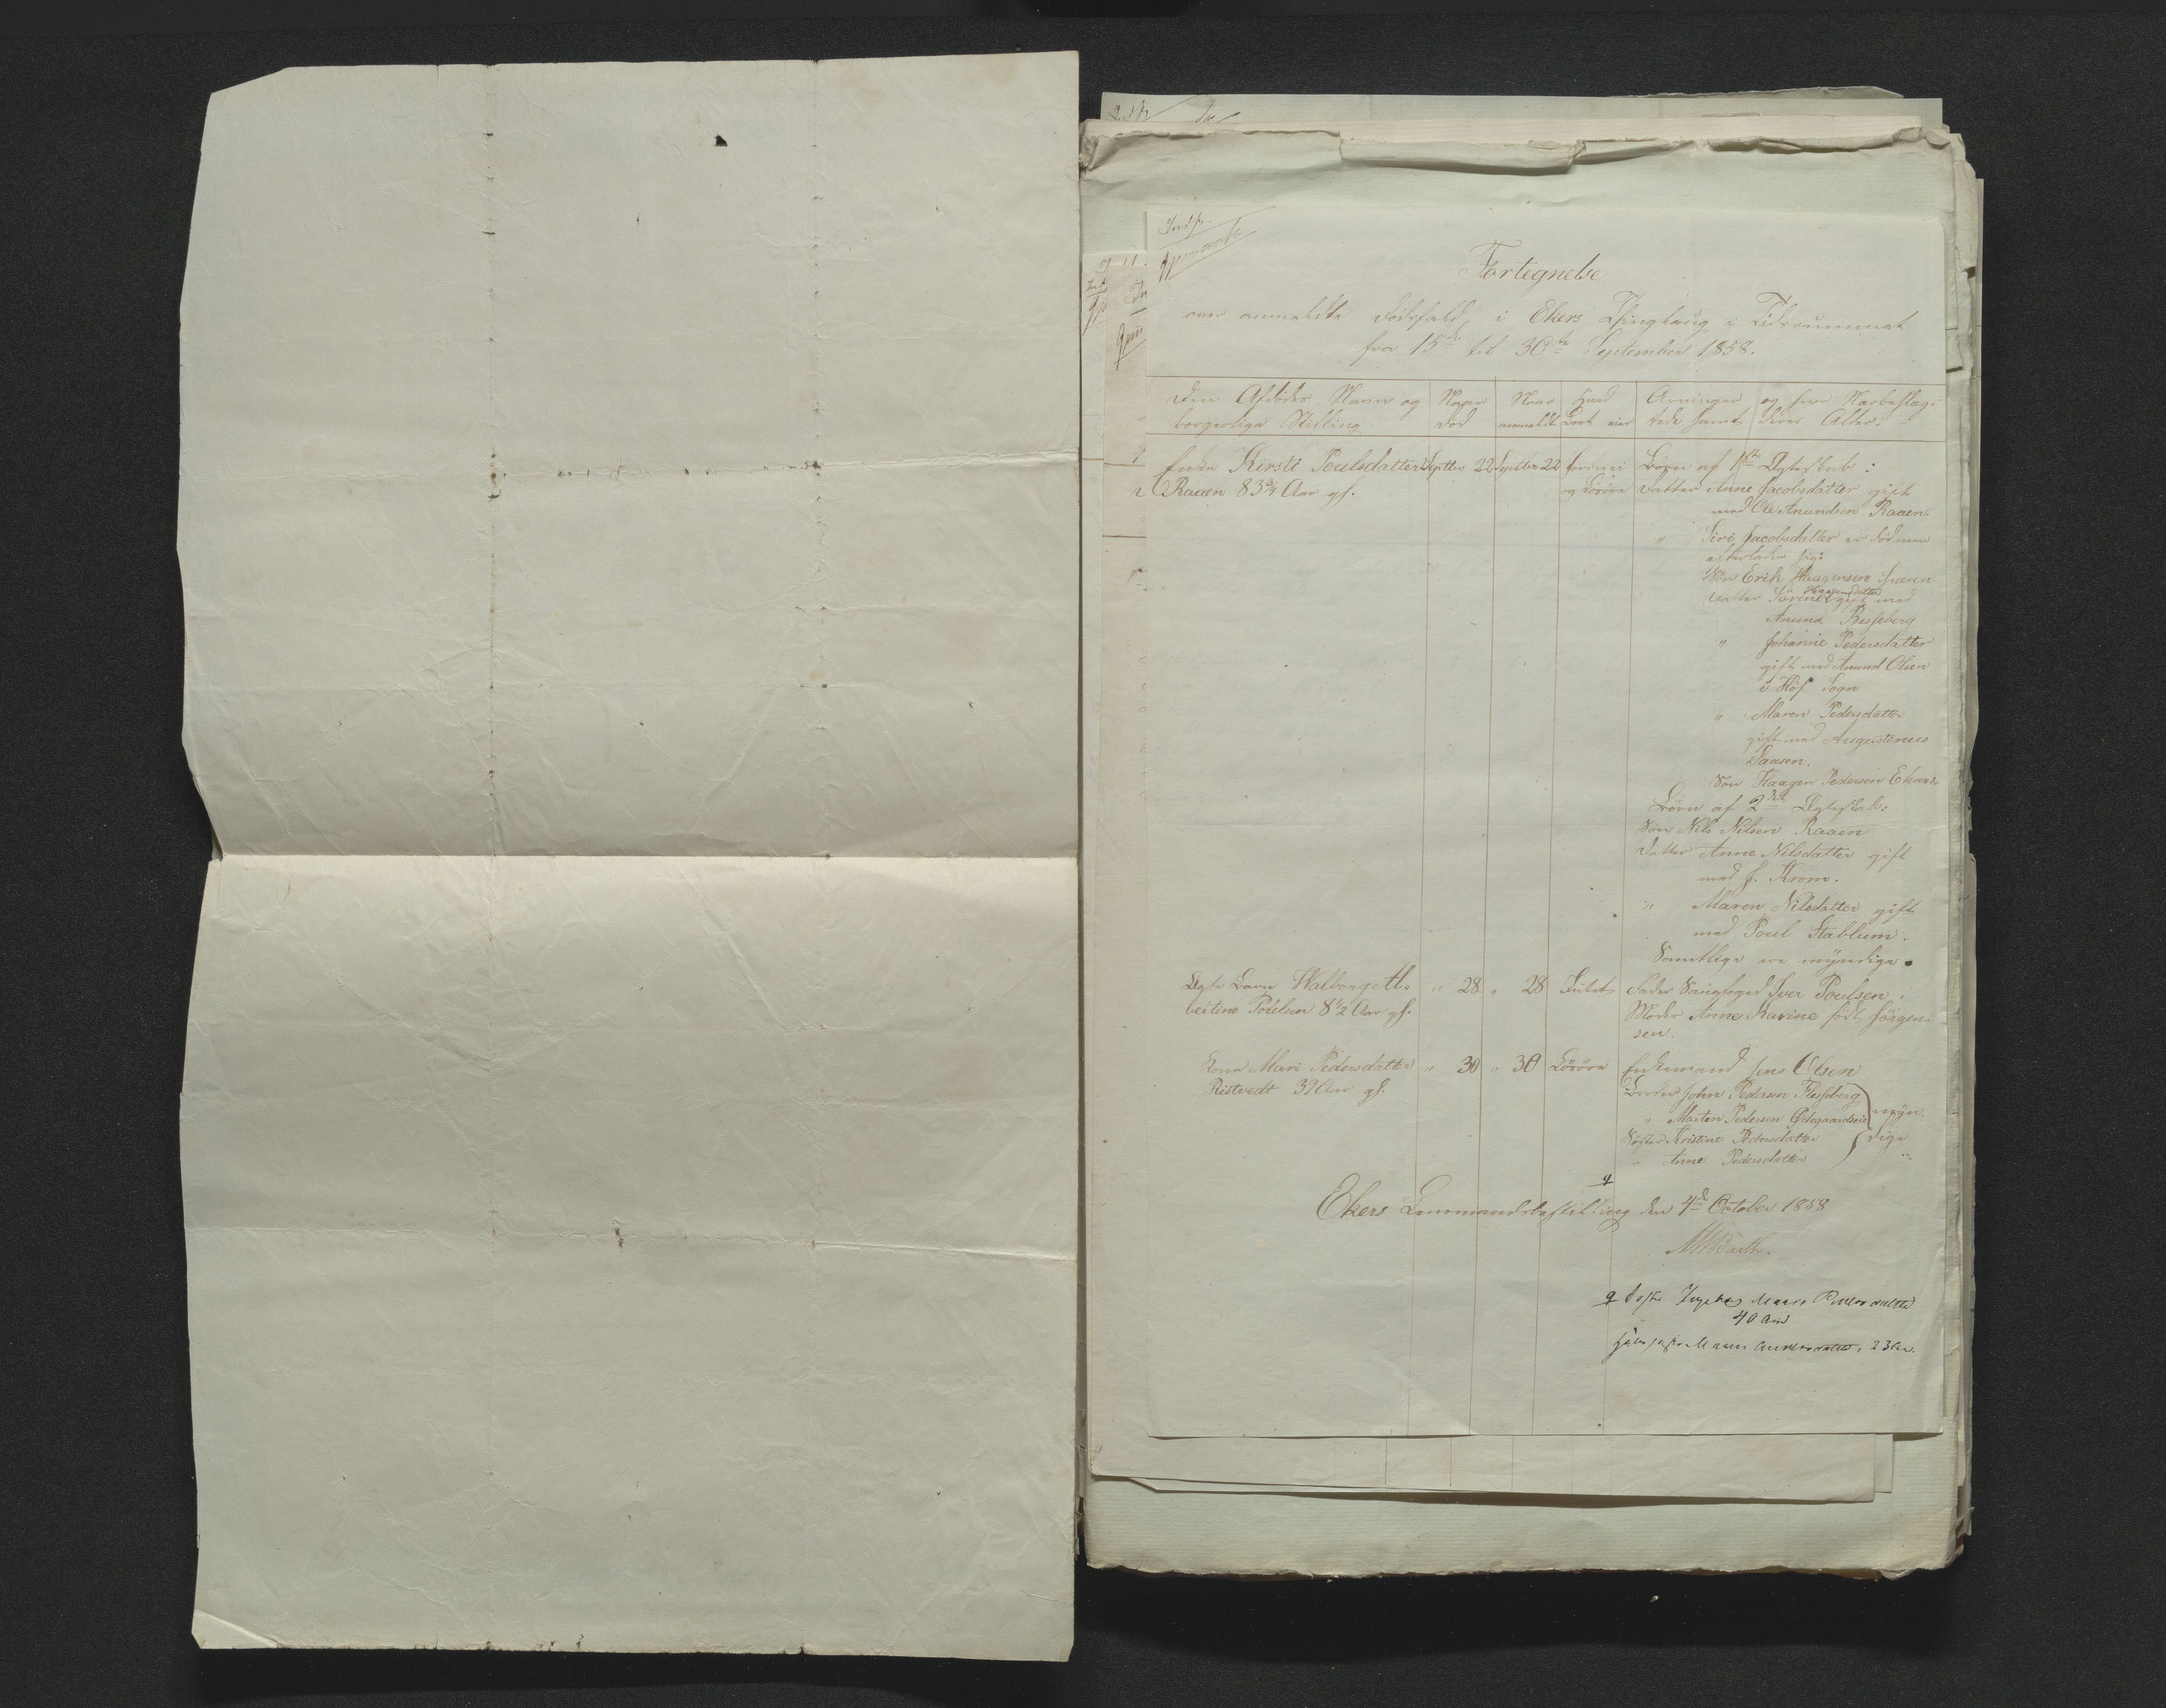 Indf.
Fortegnelse
over anmeldte Dødsfald i Ekers Thinglaug i Tidsrummet
fra 15de til 30te September 1858.
Den Afdødes Navn og
borgerlige Stilling.
Naar
død
Naar
anmeldt
Hvad
Boet eier
Arvinger og hvor Nærbeslæg-
tede samt deres Alder.
Enke Kirsti Poulsdatter
Raaen 83 3/4 Aar gl.
Septbr 22
Septbr 22
og Løsøre
Børn af 1ste Ægteskab:
Datter Anne Jacobsdatter gift
med Ole Anundsen Raaen.
" Siri Jacobsdatter er død men
efterlader sig:
Søn Erik Haagensen
Datter Sørine Haagensdatter gift med
Anund Besseberg
" Johanne Pedersdatter
gift med Anund Olsen
i Hof Sogn
" Maren Pedersdatter
gift med Augustinus
Saasen.
Søn Haagen Pedersen Ekenes.
Børn af 2det Ægteskab:
Søn Nils Nilsen Raaen
Datter Anne Nilsdatter gift
med J. Krom.
" Maren Nilsdatter gift
med Poul Stablum.
Samtlige ere myndige.
Ægte Barn Walborg Al-
bertine Poulsen 8 1/2 Aar gl.
" 28
" 28
Intet
Fader Iver Poulsen.
Moder Anne Karine født Jörgen-
sen.
Kone Mari Pedersdatter
Ristvedt 39 Aar gl.
" 30
" 30
Løsøre
Enkemand Jens Olsen
Broder John Pedersen Flesseberg
" Morten Pedersen Ødegaardseie
Søster Kristine Pedersdatter
" Anne Pedersdatter
myn-
dige
Ekers Lensmandsbestilling den 4de October 1858
40 Aar
Maren Andersdatter, 23 Aar.